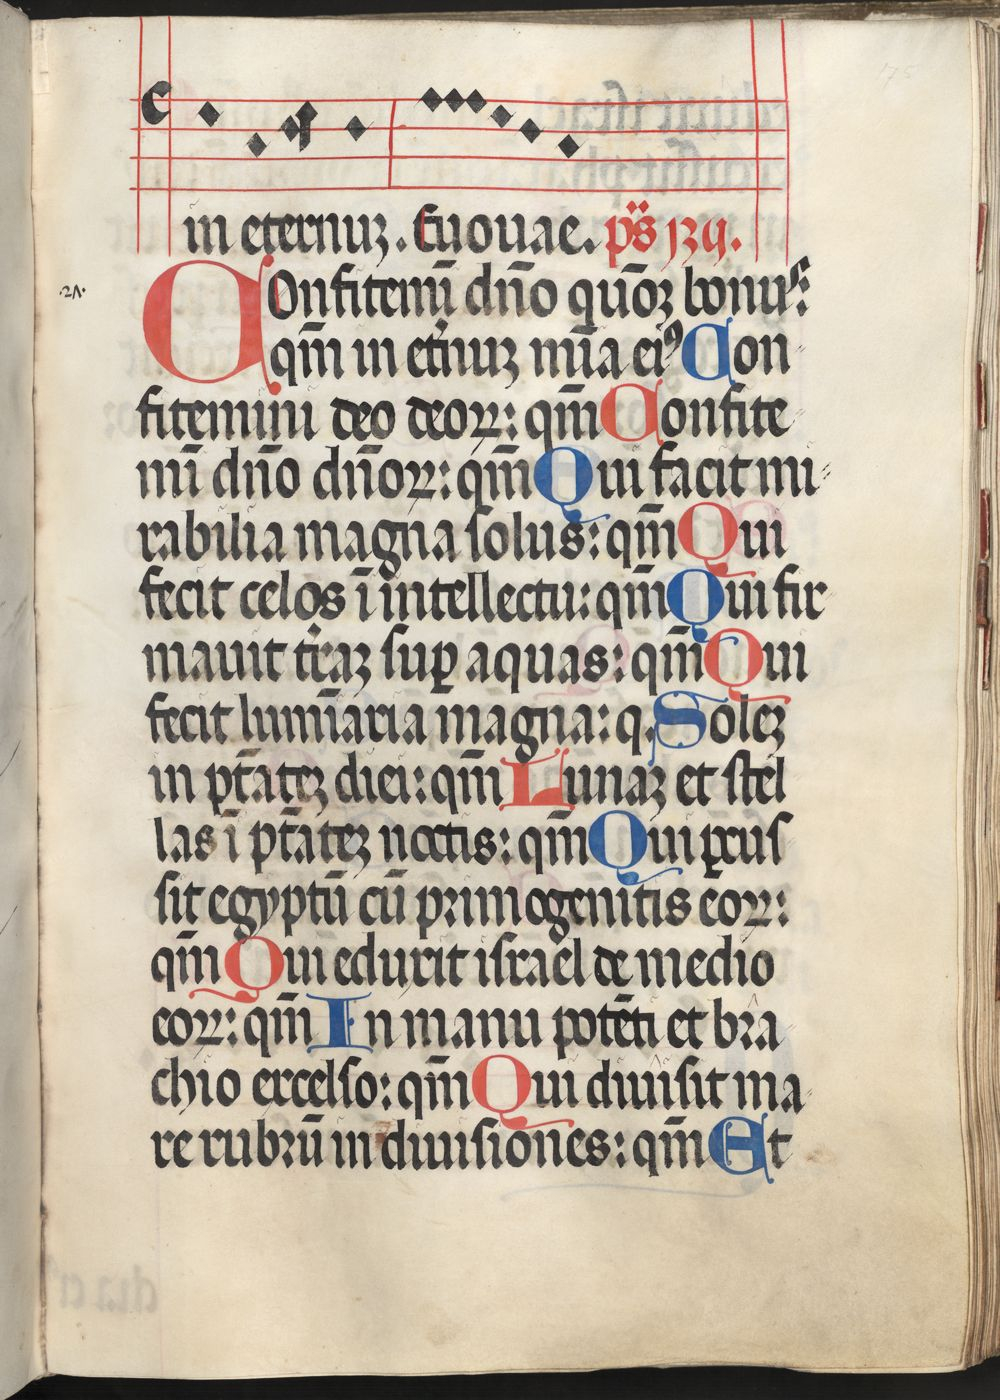 in eternuꝫ. Euouae. ps̄ 135.
Confitemī dn̄o quōꝫ bonus:
qm̄ in et̄nuꝫ mīa eiꝰ Con
fitemini deo deoꝝ: qm̄ Confite
mī dn̄o dn̄oꝝ: qm̄ Qui facit mi
rabilia magna solus: qm̄ Qui
fecit celos ī intellectu: qm̄ Qui fir
mauit t̄raꝫ suꝑ aquas: qm̄ Qui
fecit lumīaria magna: q. Soleꝫ
in pt̄ateꝫ diei: qm̄ Lunaꝫ et stel
las ī pt̄ateꝫ noctis: qm̄ Qui ꝑcus
sit egyptū cū primogenitis eoꝝ:
qm̄ Qui eduxit israel de medio
eoꝝ: qm̄ In manu potēti et bra
chio excelso: qm̄ Qui diuisit ma
re rubrū in diuisiones: qm̄ Et